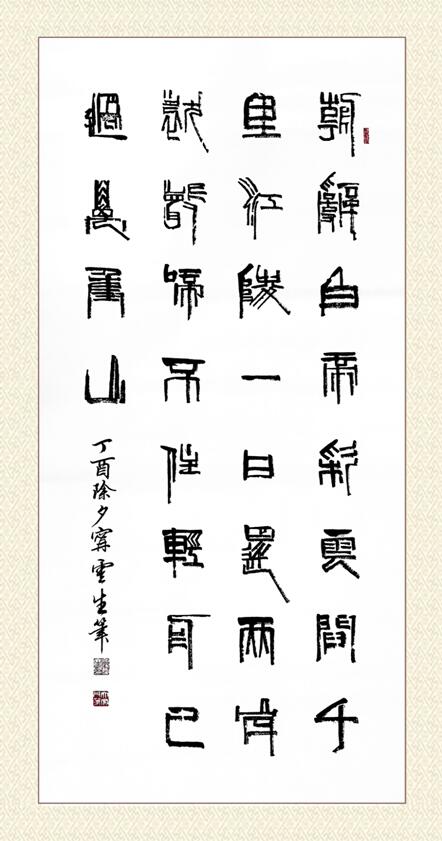 朝辭白帝彩雲間千
里江陵一日還兩岸
猿聲啼不住輕舟已
過萬重山
丁酉除夕寗雲生筆